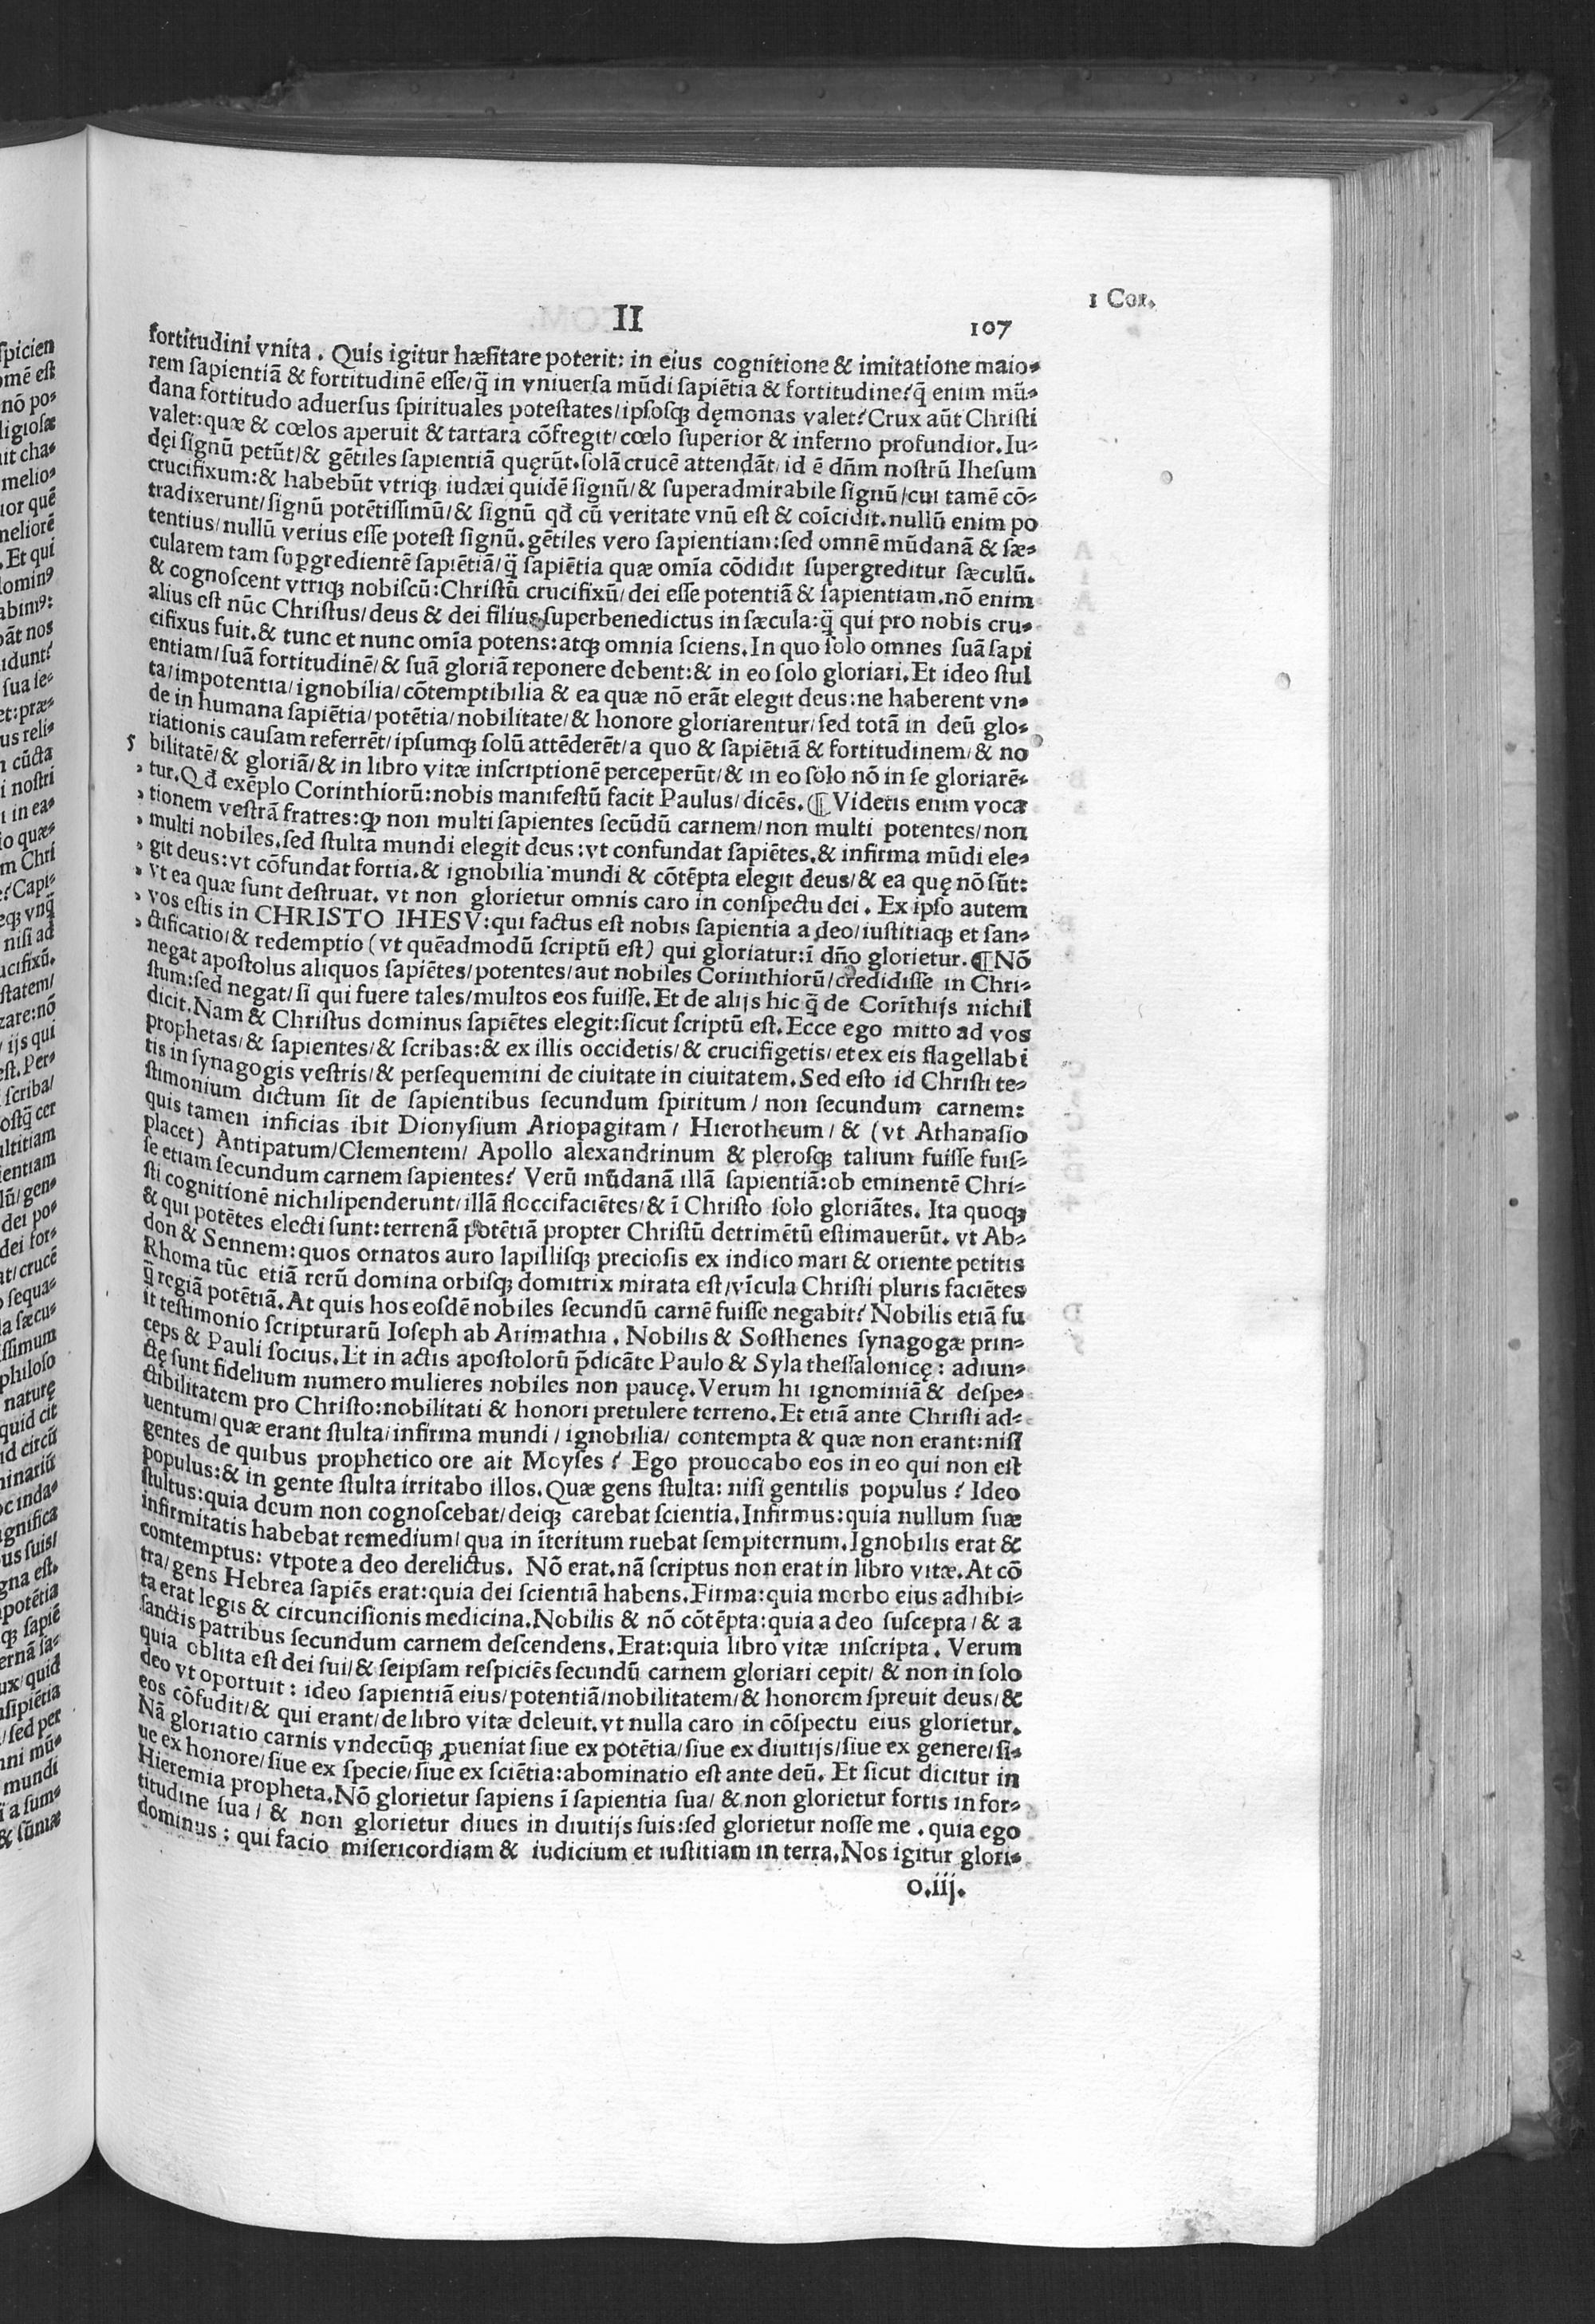 1 Cor.
II
107
fortitudini vnita. Quis igitur hæſitare poterit: in eius cognitione & imitatione maio-
rem ſapientiã & fortitudinẽ eſſe/q̃ in vniuerſa mũdi ſapiẽtia & fortitudine? q̃ enim mũ-
dana fortitudo aduerſus ſpirituales poteſtates/ipſoſqꝫ dęmonas valet? Crux aũt Chriſti
valet: quæ & cœlos aperuit & tartara cõfregit/cœlo ſuperior & inferno profundior. Iu-
dęi ſignũ petũt/& gẽtiles ſapientiã quęrũt. ſolã crucẽ attendãt/id ẽ dñm noſtrũ Iheſum
crucifixum: & habebũt vtriqꝫ iudæi quidẽ ſignũ/& ſuperadmirabile ſignũ/cui tamẽ cõ-
tradixerunt/ſignũ potẽtiſſimũ/& ſignũ qđ cũ veritate vnũ eſt & coĩcidit. nullũ enim po
tentius/nullũ verius eſſe poteſt ſignũ. gẽtiles vero ſapientiam: ſed omnẽ mũdanã & ſæ-
cularem tam ſuꝑgredientẽ ſapiẽtiã/q̃ ſapiẽtia quæ omĩa cõdidit ſupergreditur ſæculũ.
& cognoſcent vtriqꝫ nobiſcũ: Chriſtũ crucifixũ/dei eſſe potentiã & ſapientiam. nõ enim
alius eſt nũc Chriſtus/deus & dei filius ſuperbenedictus in ſæcula: q̃ qui pro nobis cru-
cifixus fuit. & tunc et nunc omĩa potens: atqꝫ omnia ſciens. In quo ſolo omnes ſuã ſapi
entiam/ſuã fortitudinẽ/& ſuã gloriã reponere debent: & in eo ſolo gloriari. Et ideo ſtul
ta/impotentia/ignobilia/cõtemptibilia & ea quæ nõ erãt elegit deus: ne haberent vn-
de in humana ſapiẽtia/potẽtia/nobilitate/& honore gloriarentur/ſed totã in deũ glo-
riationis cauſam referrẽt/ipſumqꝫ ſolũ attẽderẽt/a quo & ſapiẽtiã & fortitudinem/& no
5 bilitatẽ/& gloriã/& in libro vitæ inſcriptionẽ perceperũt/& in eo ſolo nõ in ſe gloriarẽ-
tur. Qđ exẽplo Corinthiorũ: nobis manifeſtũ facit Paulus/dicẽs. ¶ Videtis enim voca
tionem veſtrã fratres: ꝙ non multi ſapientes ſecũdũ carnem/non multi potentes/non
multi nobiles. ſed ſtulta mundi elegit deus: vt confundat ſapiẽtes. & infirma mũdi ele-
git deus: vt cõfundat fortia. & ignobilia mundi & cõtẽpta elegit deus/& ea quę nõ ſũt:
vt ea quæ ſunt deſtruat. vt non glorietur omnis caro in conſpectu dei. Ex ipſo autem
vos eſtis in CHRISTO IHESV: qui factus eſt nobis ſapientia a deo/iuſtitiaqꝫ et ſan-
ctificatio/& redemptio (vt quẽadmodũ ſcriptũ eſt) qui gloriatur: ĩ dño glorietur. ¶ Nõ
negat apoſtolus aliquos ſapiẽtes/potentes/aut nobiles Corinthiorũ/credidiſſe in Chri-
ſtum: ſed negat/ſi qui fuere tales/multos eos fuiſſe. Et de alijs hic q̃ de Corĩthijs nichil
dicit. Nam & Chriſtus dominus ſapiẽtes elegit: ſicut ſcriptũ eſt. Ecce ego mitto ad vos
prophetas/& ſapientes/& ſcribas: & ex illis occidetis/& crucifigetis/et ex eis flagellabi
tis in ſynagogis veſtris/& perſequemini de ciuitate in ciuitatem. Sed eſto id Chriſti te-
ſtimonium dictum ſit de ſapientibus ſecundum ſpiritum/non ſecundum carnem:
quis tamen inficias ibit Dionyſium Ariopagitam/Hierotheum/& (vt Athanaſio
placet) Antipatum/Clementem/Apollo alexandrinum & pleroſqꝫ talium fuiſſe fuiſ-
ſe etiam ſecundum carnem ſapientes? Verũ mũdanã illã ſapientiã: ob eminentẽ Chri-
ſti cognitionẽ nichilipenderunt/illã floccifaciẽtes/& ĩ Chriſto ſolo gloriãtes. Ita quoqꝫ
& qui potẽtes electi ſunt: terrenã potẽtiã propter Chriſtũ detrimẽtũ eſtimauerũt. vt Ab-
don & Sennem: quos ornatos auro lapilliſqꝫ precioſis ex indico mari & oriente petitis
Rhoma tũc etiã rerũ domina orbiſqꝫ domitrix mirata eſt/vĩcula Chriſti pluris faciẽtes
q̃ regiã potẽtiã. At quis hos eoſdẽ nobiles ſecundũ carnẽ fuiſſe negabit? Nobilis etiã fu
it teſtimonio ſcripturarũ Ioſeph ab Arimathia. Nobilis & Soſthenes ſynagogæ prin-
ceps & Pauli ſocius. Et in actis apoſtolorũ p̃dicãte Paulo & Syla theſſalonicę: adiun-
ctę ſunt fidelium numero mulieres nobiles non paucę. Verum hi ignominiã & deſpe-
ctibilitatem pro Chriſto: nobilitati & honori pretulere terreno. Et etiã ante Chriſti ad-
uentum/quæ erant ſtulta/infirma mundi/ignobilia/contempta & quæ non erant: niſi
gentes de quibus prophetico ore ait Moyſes? Ego prouocabo eos in eo qui non eſt
populus: & in gente ſtulta irritabo illos. Quæ gens ſtulta: niſi gentilis populus? Ideo
ſtultus: quia deum non cognoſcebat/deiqꝫ carebat ſcientia. Infirmus: quia nullum ſuæ
infirmitatis habebat remedium/qua in ĩteritum ruebat ſempiternum. Ignobilis erat &
comtemptus: vtpote a deo derelictus. Nõ erat. nã ſcriptus non erat in libro vitæ. At cõ
tra/gens Hebrea ſapiẽs erat: quia dei ſcientiã habens. Firma: quia morbo eius adhibi-
ta erat legis & circunciſionis medicina. Nobilis & nõ cõtẽpta: quia a deo ſuſcepta/& a
ſanctis patribus ſecundum carnem deſcendens. Erat: quia libro vitæ inſcripta. Verum
quia oblita eſt dei ſui/& ſeipſam reſpiciẽs ſecundũ carnem gloriari cepit/& non in ſolo
deo vt oportuit: ideo ſapientiã eius/potentiã/nobilitatem/& honorem ſpreuit deus/&
eos cõfudit/& qui erant/de libro vitæ deleuit. vt nulla caro in cõſpectu eius glorietur.
Nã gloriatio carnis vndecũqꝫ ꝓueniat ſiue ex potẽtia/ſiue ex diuitijs/ſiue ex genere/ſi-
ue ex honore/ſiue ex ſpecie/ſiue ex ſciẽtia: abominatio eſt ante deũ. Et ſicut dicitur in
Hieremia propheta. Nõ glorietur ſapiens ĩ ſapientia ſua/& non glorietur fortis in for-
titudine ſua/& non glorietur diues in diuitijs ſuis: ſed glorietur noſſe me. quia ego
dominus: qui facio miſericordiam & iudicium et iuſtitiam in terra. Nos igitur glori-
o.iij.